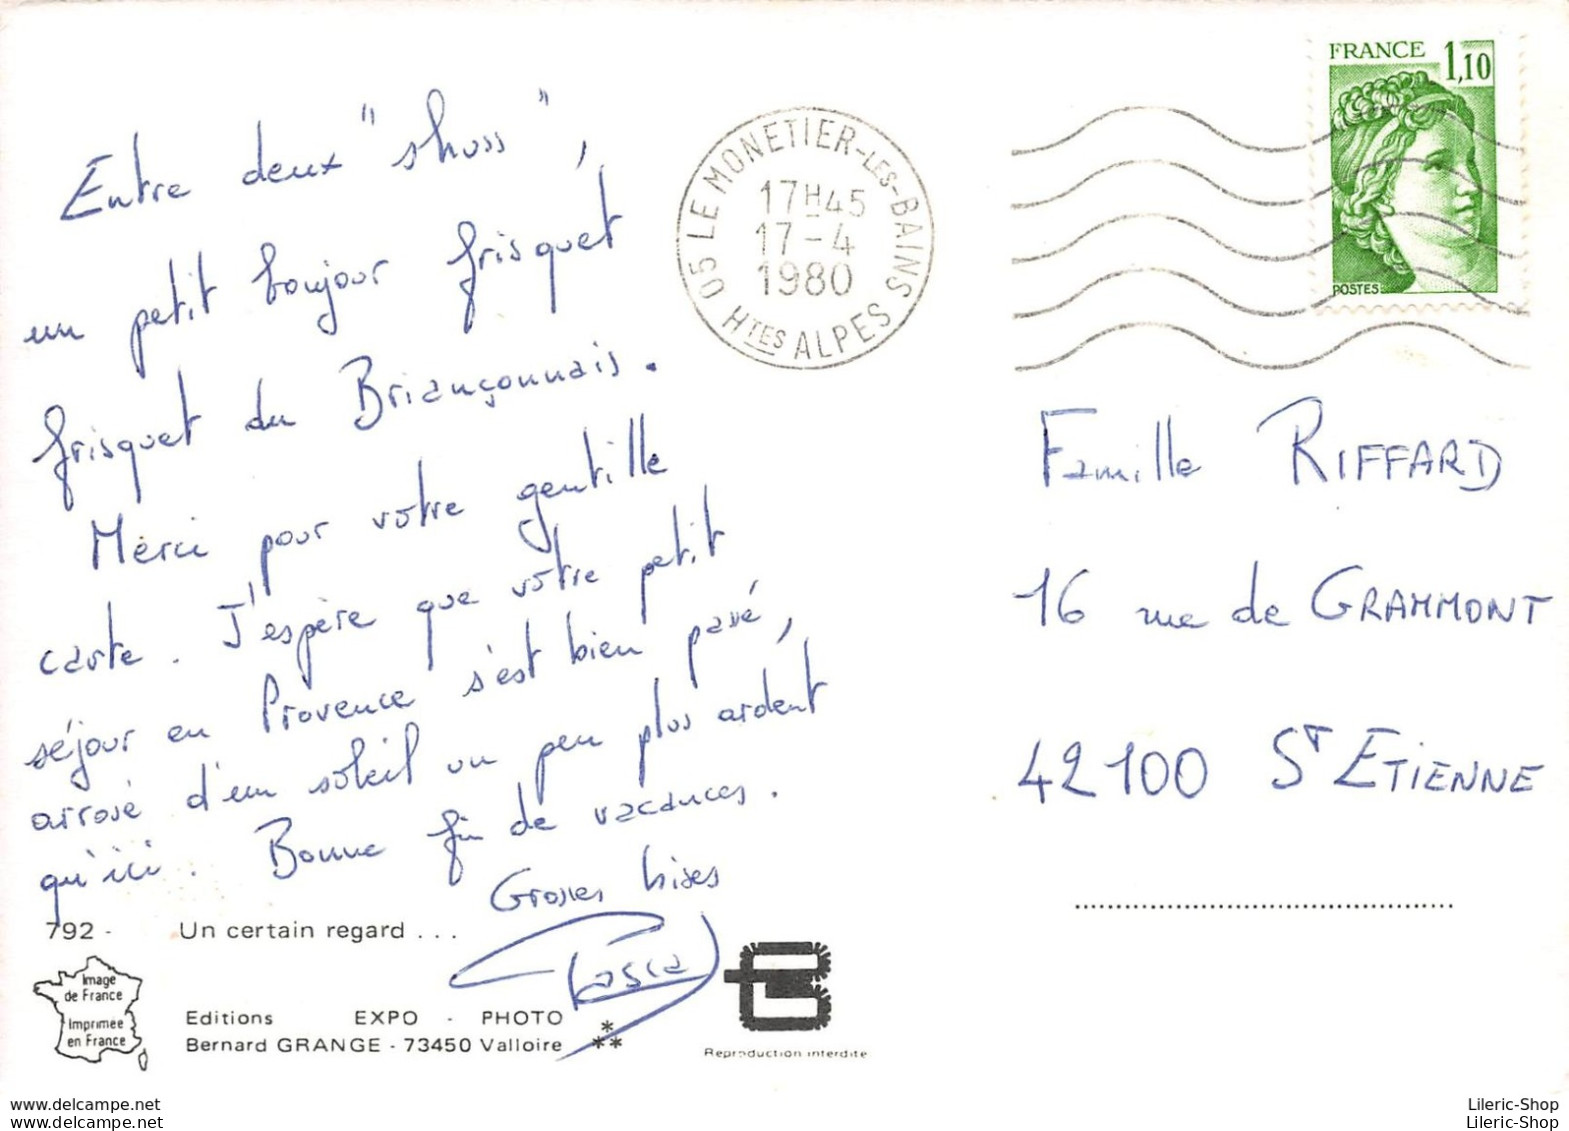 Entre deux "shuss",
un petit bonjour frisquet
frisquet du Briançonnais.
Merci pour votre gentille
carte. J'espère que votre petit
séjour en Provence s'est bien passé,
arrosé d'un soleil un peu plus ardent
qu'ici. Bonne fin de vacances.
Grosses bises
Pascal
792 - Un certain regard ...
Image
de France
Imprimée
en France
Editions EXPO - PHOTO
Bernard GRANGE - 73450 Valloire
Reproduction interdite
05 LE MONETIER-LES-BAINS
17H45
17-4
1980
HTES ALPES
FRANCE 1,10
POSTES
Famille RIFFARD
16 rue de GRAMMONT
42100 ST ETIENNE
delcampe.net
Lileric-Shop
delcampe.net
Lileric-Shop